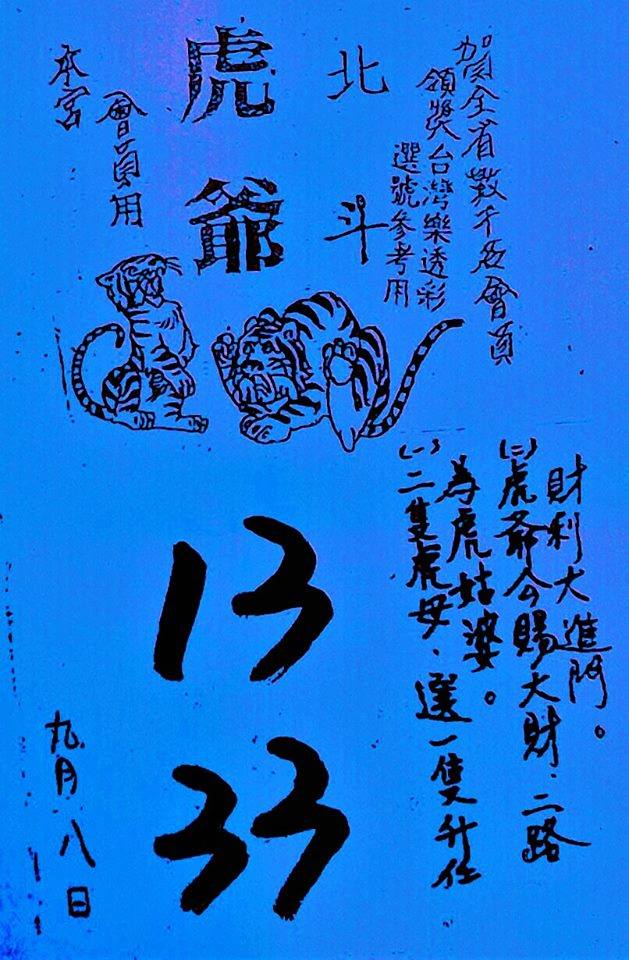 賀全省數千名會員
領獎台灣樂透彩
選號參考用
北斗
虎爺
會員用
本宮
財利大進門。
(二)虎爺公賜大財、二路
為虎姑婆。
(一)二隻虎母、選一隻升任
13
33
九月八日